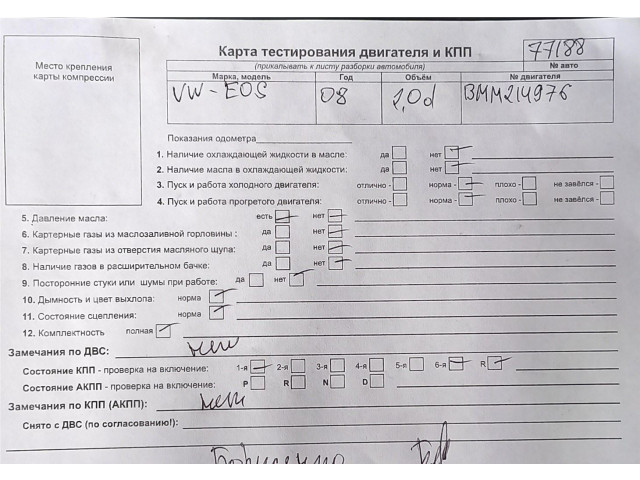 Место крепления
карты компрессии
Карта тестирования двигателя и КПП
77/88
(прикалывать к листу разборки автомобиля)
№ авто
Марка, модель Год Объём № двигателя
VW-EOS 08 2,0d BMM214976
Показания одометра
1. Наличие охлаждающей жидкости в масле: да нет
2. Наличие масла в охлаждающей жидкости: да нет
3. Пуск и работа холодного двигателя: отлично - норма - плохо - не завёлся -
4. Пуск и работа прогретого двигателя: отлично - норма - плохо - не завёлся -
5. Давление масла: есть нет
6. Картерные газы из маслозаливной горловины : да нет
7. Картерные газы из отверстия масляного щупа: да нет
8. Наличие газов в расширительном бачке: да нет
9. Посторонние стуки или шумы при работе: да нет
10. Дымность и цвет выхлопа: норма
11. Состояние сцепления: норма
12. Комплектность полная
Замечания по ДВС: нет
Состояние КПП - проверка на включение: 1-я 2-я 3-я 4-я 5-я 6-я R
Состояние АКПП - проверка на включение: P R N D
Замечания по КПП (АКПП): нет
Снято с ДВС (по согласованию!):